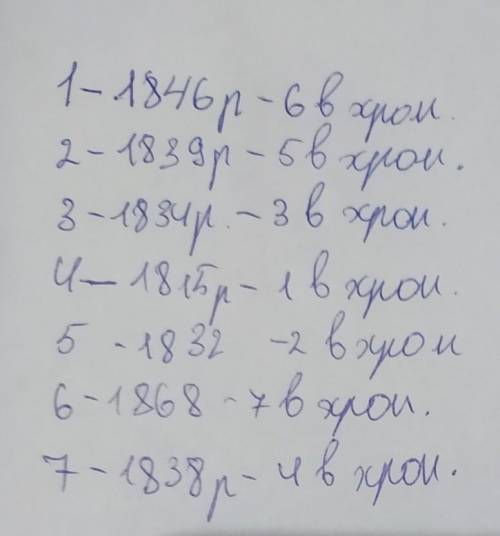 1 - 1846р - 6 в хрон.
2 - 1839р - 5 в хрон.
3 - 1834р. - 3 в хрон.
4 - 1815р - 1 в хрон.
5 - 1832 - 2 в хрон
6 - 1868 - 7 в хрон.
7 - 1838р - 4 в хрон.